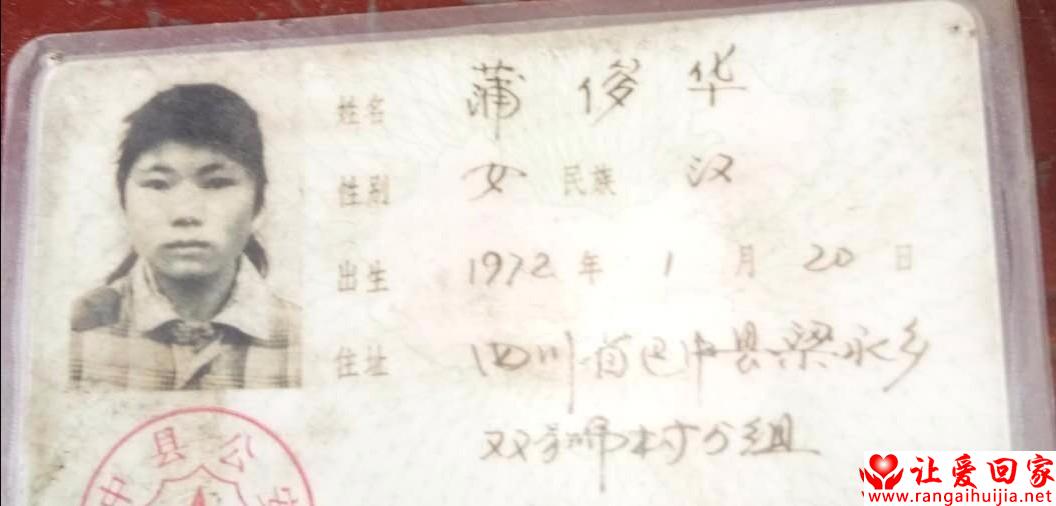 姓名 蒲俊华
性别 女 民族 汉
出生 1972年1月20日
住址 四川省巴中县梁永乡
双狮村分组
中县公安
让爱回家
www.rangaihuijia.net